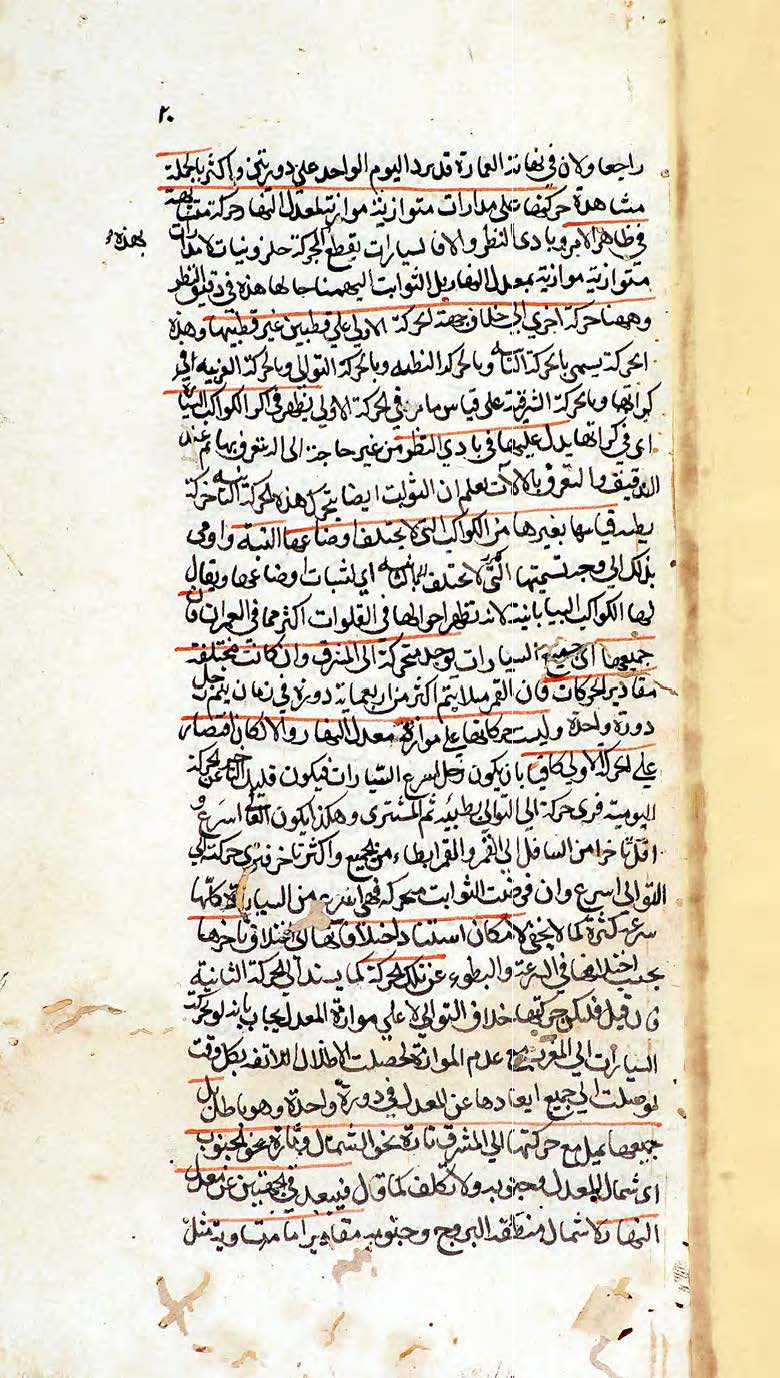 ٢٠
راجعا ولان في نهاية العمارة قد يرد اليوم الواحد علي دورتين واكثر بالجملة
مشاهدة حركتها علي مدارات متوازية موازية لمعدل النهار حركة متشابهة
في ظاهر الامر وبادي النظر والا فالسيارات بقطع الحركة حلزونيات لا مدارات
بهذه
متوازية موازية بمعدل النهار بل الثوابت اليهمنا حالها هذه في دقيق النظر
وههنا حركة اخري الي خلاف جهة الحركة الاولي علي قطبين غير قطبيها وهذه
الحركة يسمي بالحركة الثانية وبالحركة البطيئة وبالحركة التوالي وبالحركة الغربية الي
كراتها وبالحركة الشرقية علي قياس ما مر في الحركة الاولي يظهر في اكر الكواكب السيارة
اي في كراتها يدل عليها في بادي النظر من غير حاجة الي التعرف بها ثم عند
التدقيق والتعرف بالالات يعلم ان الثوابت ايضا يتحرك هذه الحركة الثانية حركة
بطيئة قياسها بغيرها من الكواكب التي لا يختلف اوضاعها البتة واومي
بذلك الي وجه تسميتها التي لا تختلف بالثابتة اي لثبات اوضاعها ويقال
لها الكواكب البيابانية لانه تظهر احوالها في الفلوات اكثر مما في العمرات فان
جميعها اي جميع السيارات يوجد متحركة الي المشرق وان كانت مختلفة
مقادير الحركات فان القمر مثلا يتم اكثر من اربعماية دورة في زمان يتم زحل
دورة واحدة وليست حركاتها علي موازاة معدل النهار والا لكان اقتصار
علي الحركة الاولي كافيا بان يكون زحل اسرع السيارات فيكون قليل التاخر عن الحركة
اليومية فري حركة الي التوالي بطيئه ثم المشتري وهكذا يكون العالي اسرع و
اقل تاخرا من السافل الي القمر والقمر ابطاء من الجميع واكثر تاخر فتري حركته الي
التوالي اسرع وان فرضت الثوابت متحركة فهي اسرع من السيارة كلها
سرعة كثيرة كما لا يخفي لامكان استناد اختلافاتها الي اختلاف تاخرها
بحسب اختلافها في السرعة والبطوء عن تلك الحركة كما يسند الي الحركة الثانية
فان قيل فليكن حركتها خلاف التوالي لا علي موازاة المعدل يجاب بانه لو تحركت
السيارات الي المغرب مع عدم الموازاة لحصلت الاظلال اللائقه بكل وقت
لوصلت الي جميع ابعادها عن المعدل في دورة واحدة وهو باطل بل
جميعها يميل مع حركتها الي المشرق تارة نحو الشمال وتارة نحو الجنوب
اي شمال المعدل وجنوبه ولا تكلف كما قال فيبعد في الجهتين عن معدل
النهار لا شمال منطقة البروج وجنوبه مقادير اما متساوية مثل